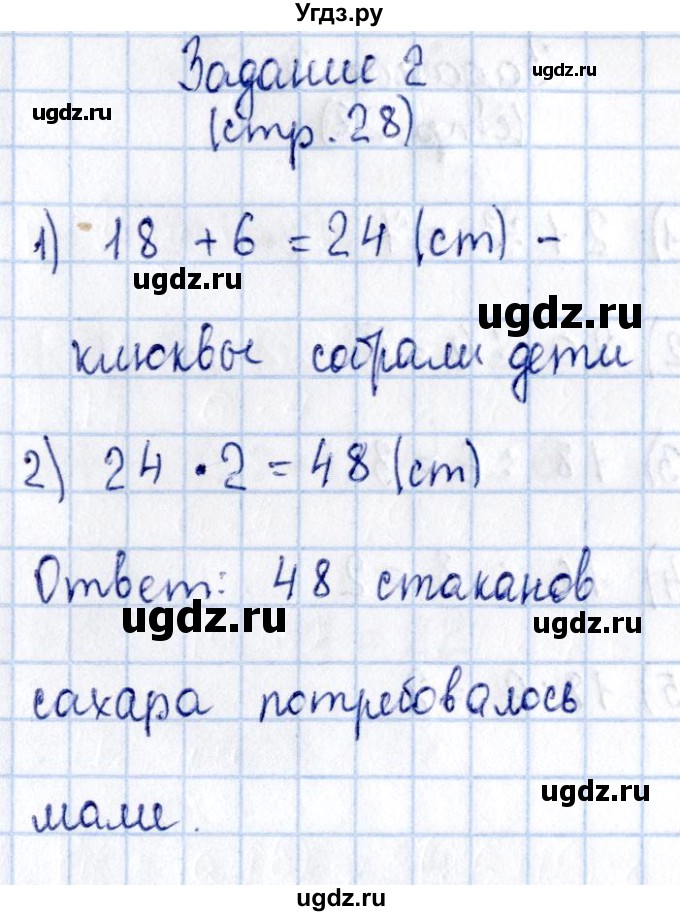 Угдз.ру
Задание 2
ugdz.ru
ugdz.ru
(стр. 28)
1) 18 + 6 = 24 (ст) -
ugdz.ru
ugdz.ru
клюквы собрали дети
2) 24 · 2 = 48 (ст)
ugdz.ru
Ответ: 48 стаканов
ugdz.ru
ugdz.ru
сахара потребовалось
ugdz.ru
маме.
ugdz.ru